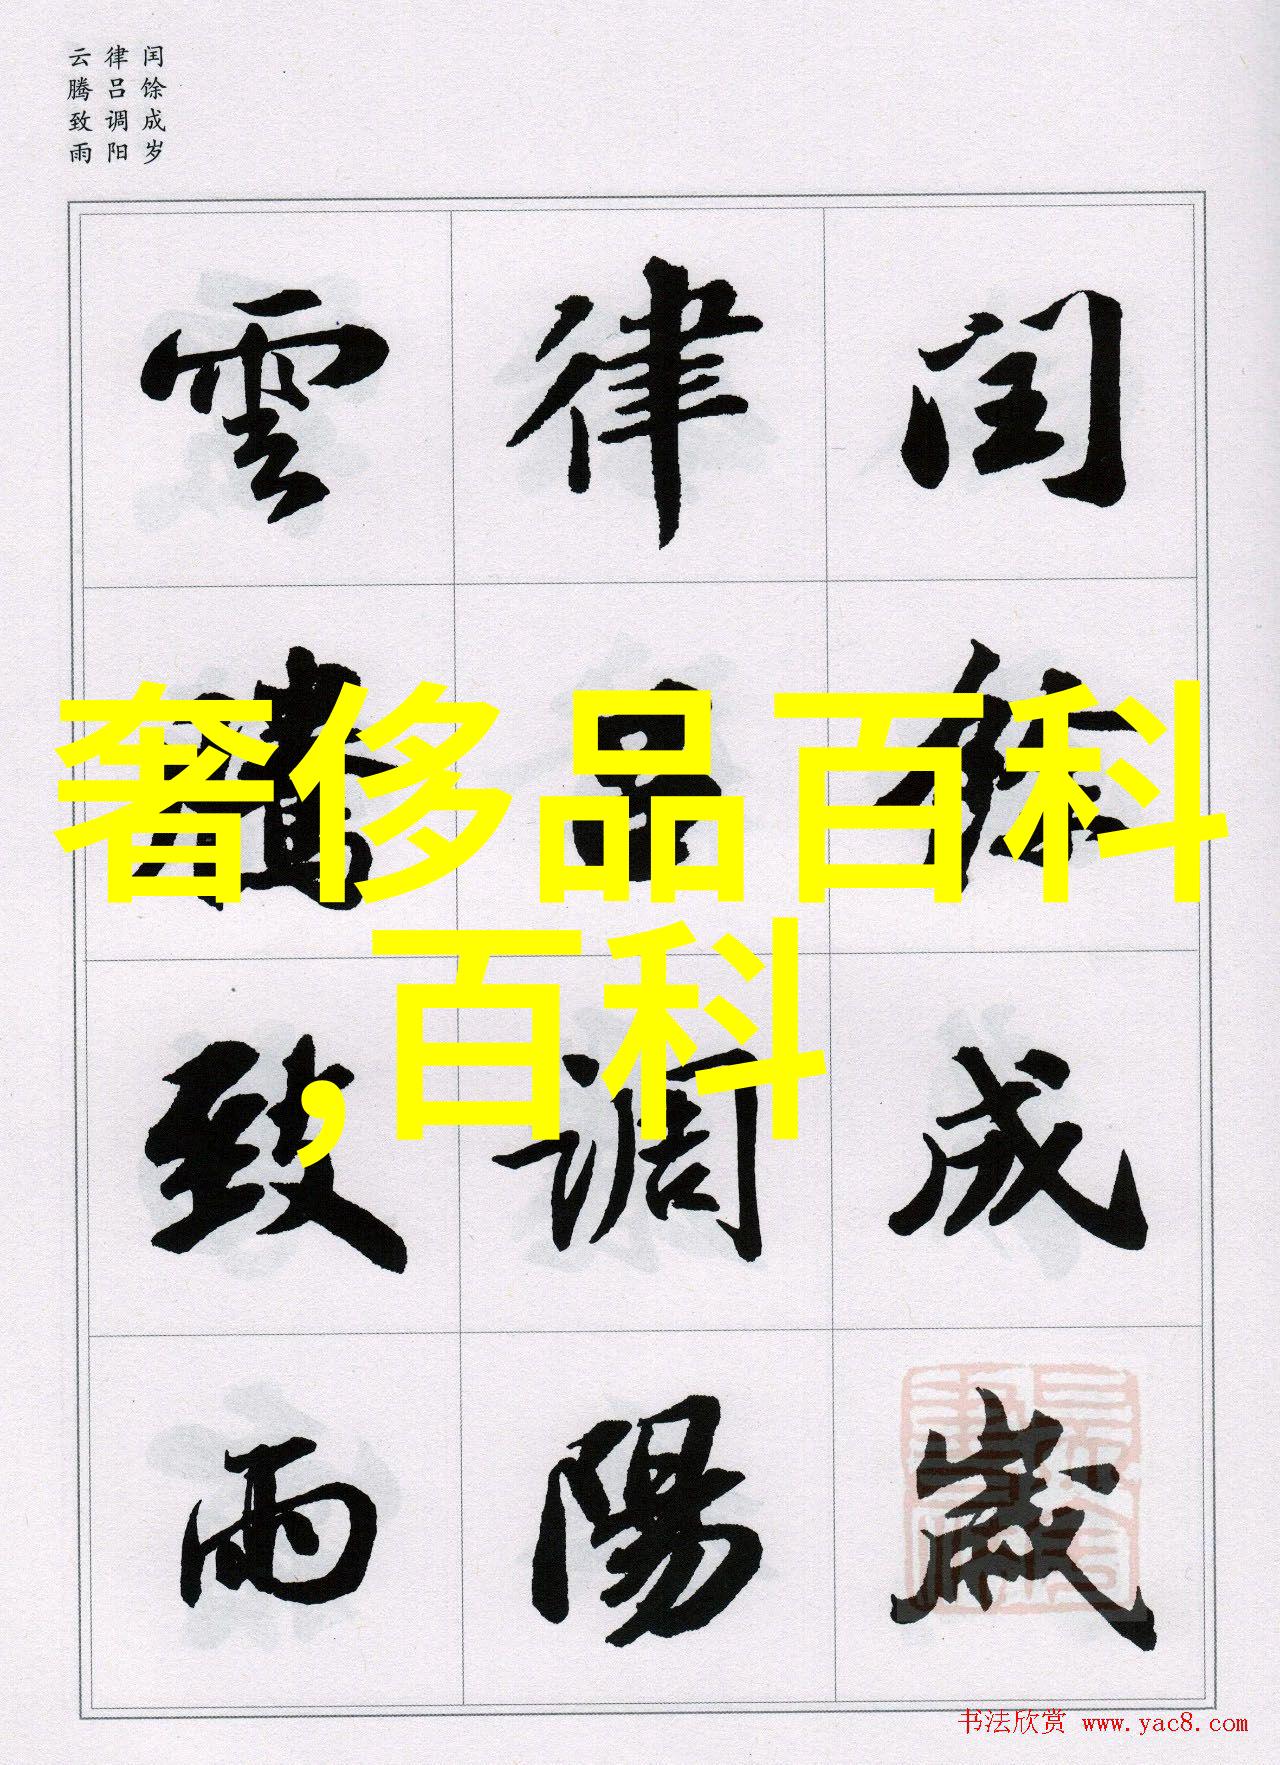 闰馀成岁
律吕调阳
云腾致雨
闰馀成歲
律吕调陽
雲騰致雨
奢侈品百科
,百科
书法欣赏 www.yac8.com